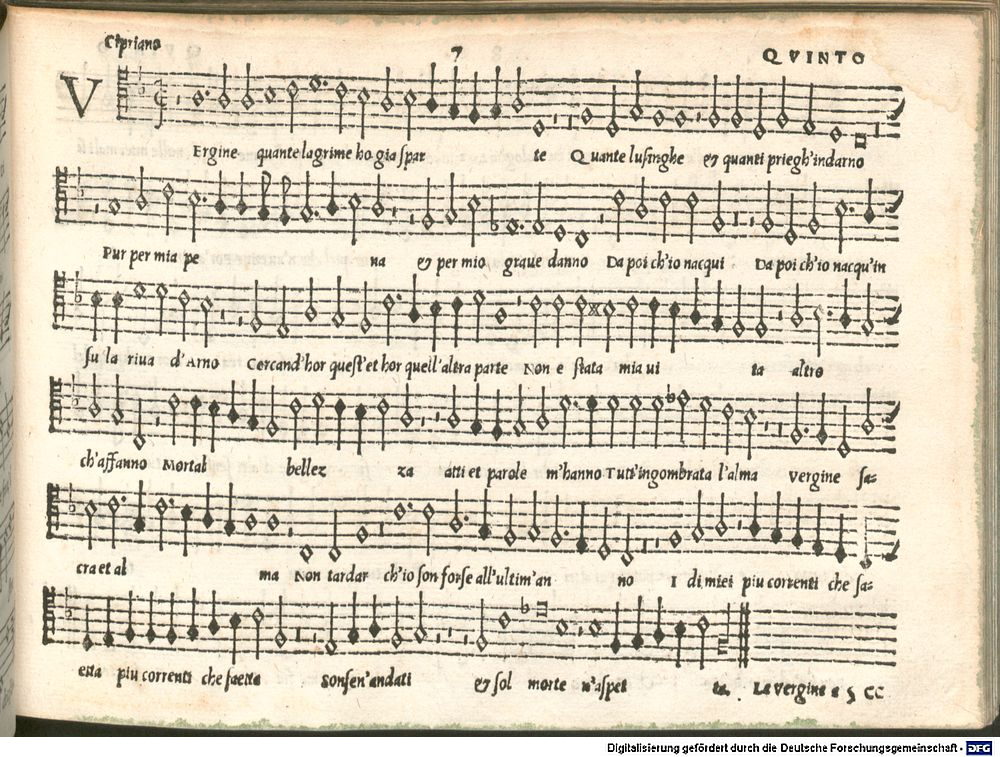 Cipriano 7 QVINTO
VErgine quante lagrime ho gia spar te Quante lusinghe & quanti priegh'indarno
Pur per mia pe na & per mio graue danno Da poi ch'io nacqui Da poi ch'io nacqu'in
su la riua d'Arno Cercand'hor quest'et hor quell'altra parte Non e stata mia ui ta altro
ch'affanno Mortal bellez za atti et parole m'hanno Tutt'ingombrata l'alma vergine sa-
cra et al ma Non tardar ch'io son forse all'ultim'an no I di miei piu correnti che sa-
etta piu correnti che saetta Sonsen'andati & sol morte n'aspet ta. Le vergine a 5 CC
Digitalisierung gefördert durch die Deutsche Forschungsgemeinschaft - DFG